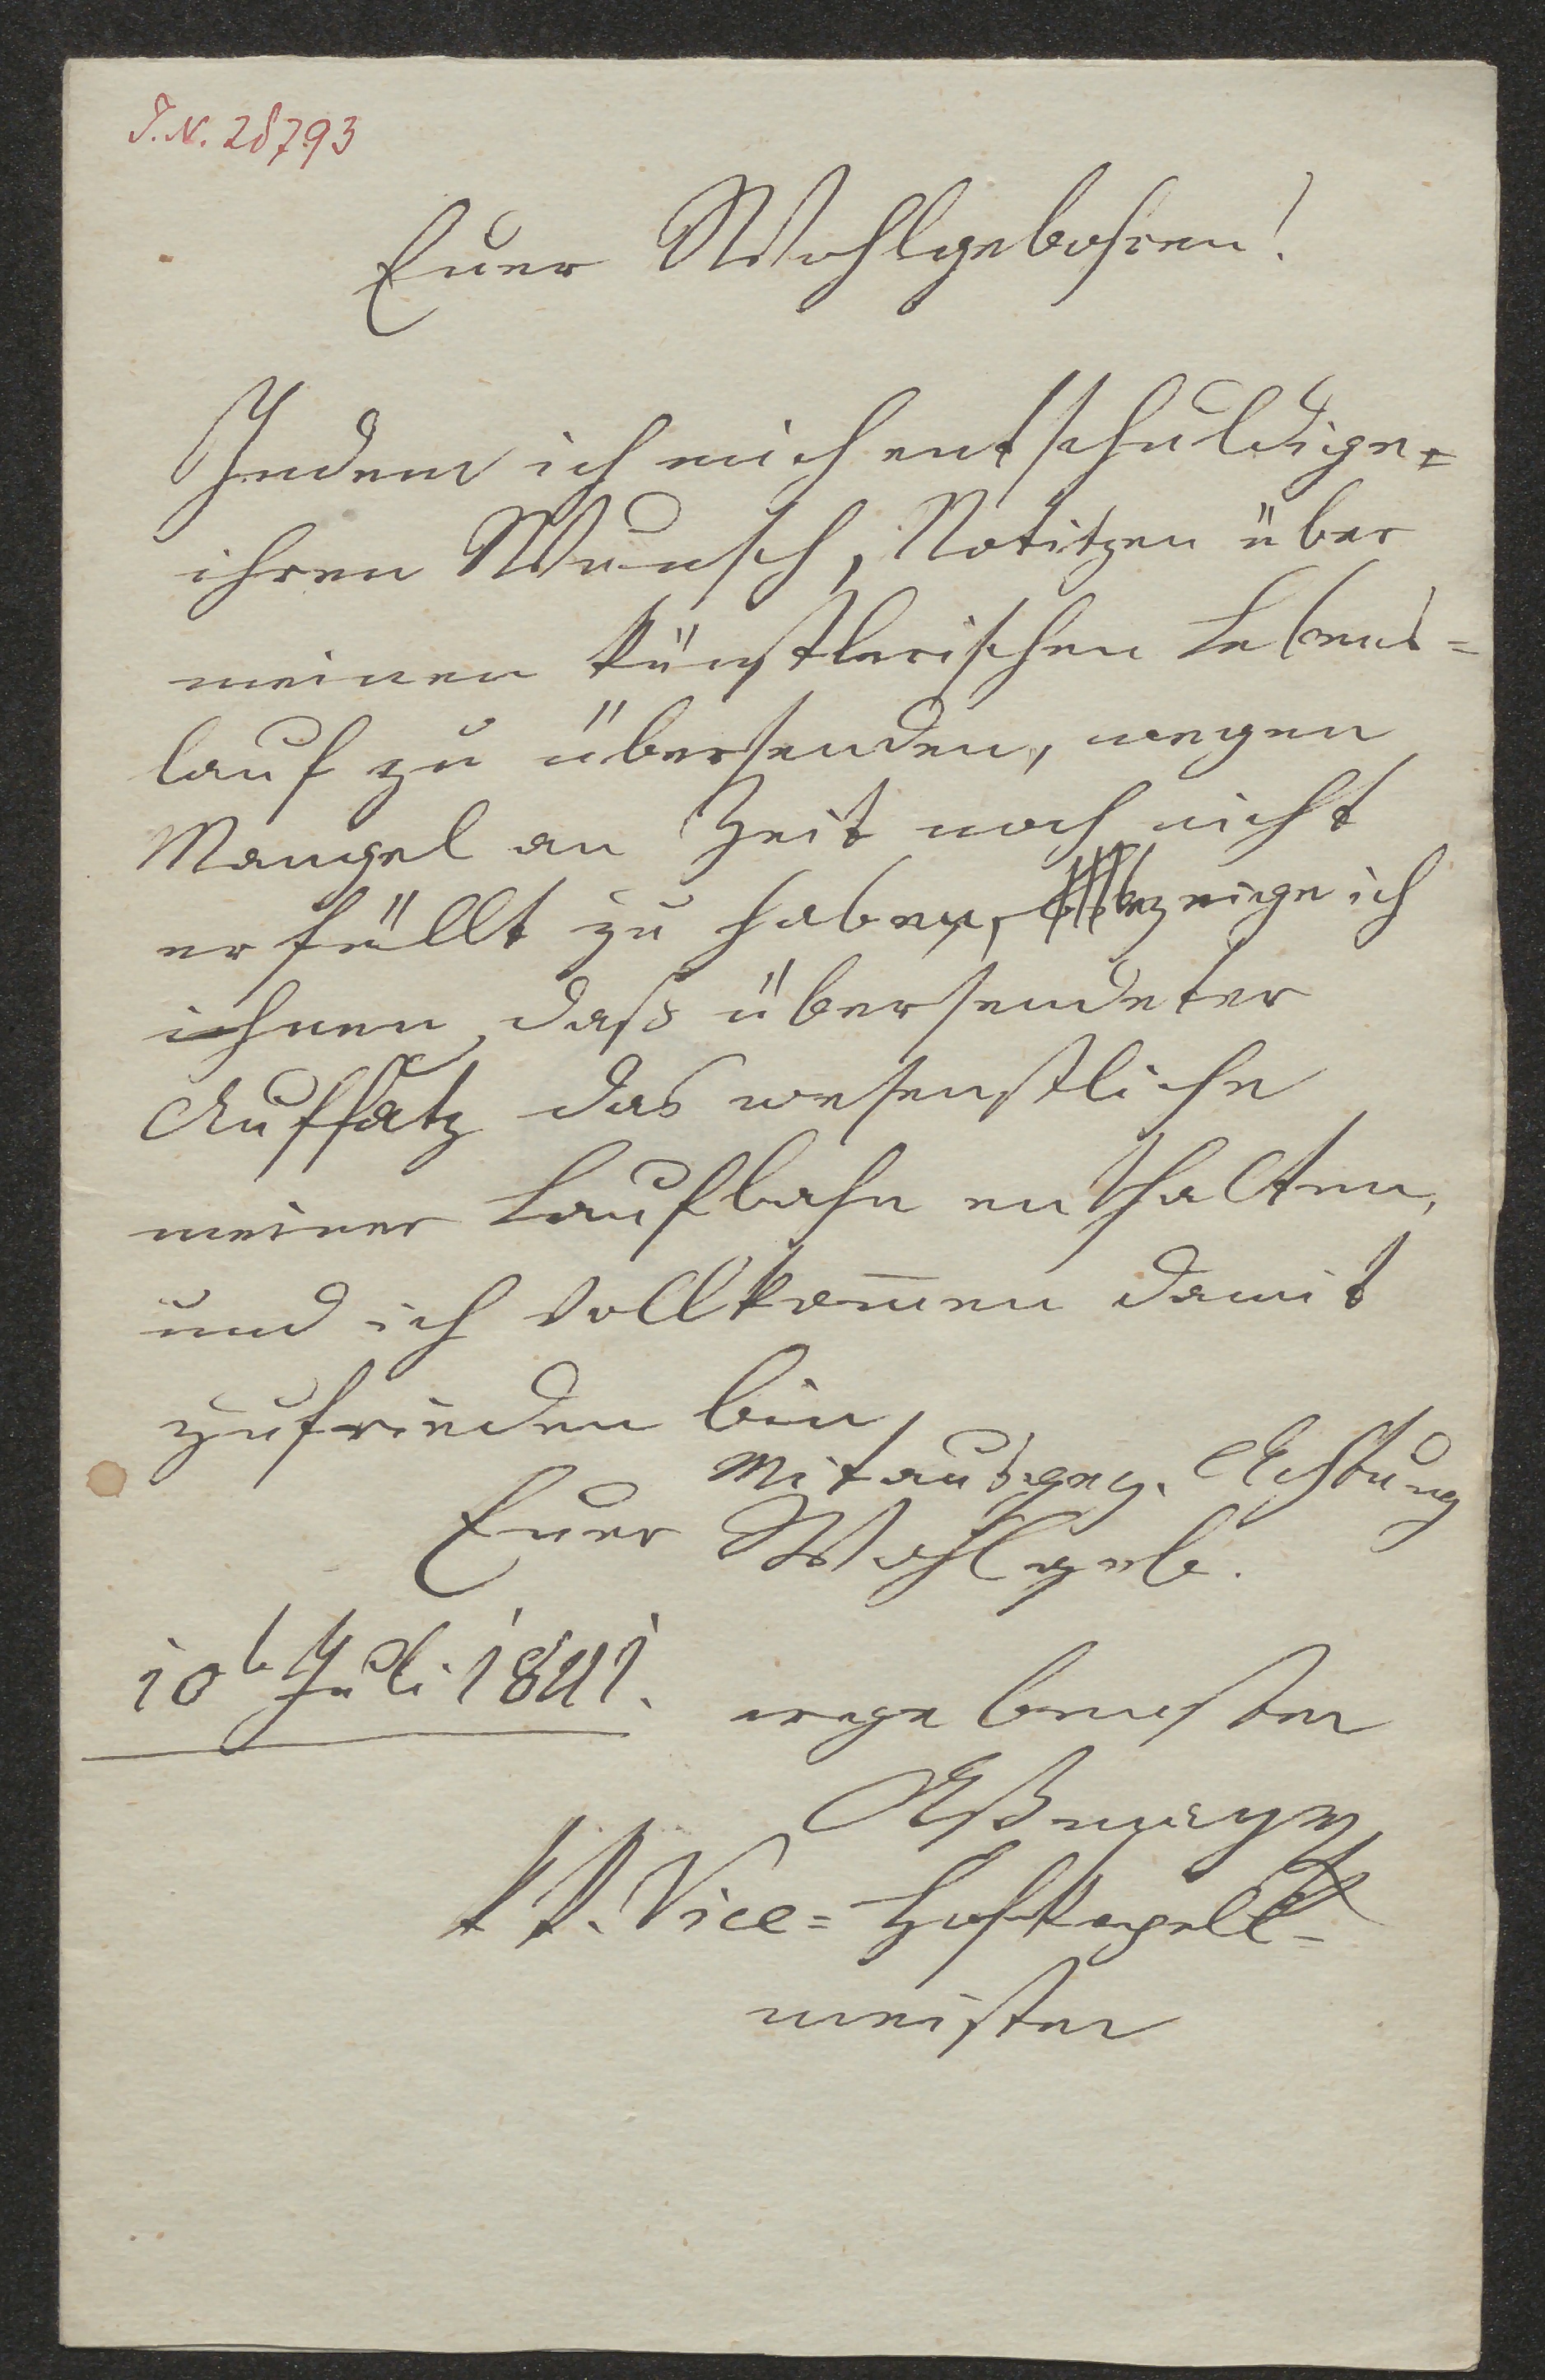 I.N. 28793
Euer Wohlgebohren!
Indem ich mich entschuldige
ihren Wunsch, Notitzen über
meinen künstlerischen Lebens=
lauf zu übersenden, wegen
Mangel an Zeit noch nicht
erfüllt zu haben, bezeige ich
ihnen, daß übersendeter
Auffsatz das wesenstliche
meiner Laufbahn enthalten,
und ich vollkom̅en damit
zufrieden bin,
Mit ausgez. Achtung
Euer Wohlgeb.
10t Juli 1841.
ergebenster
Aßmayr
k k. Vice=Hofkapell=
meister